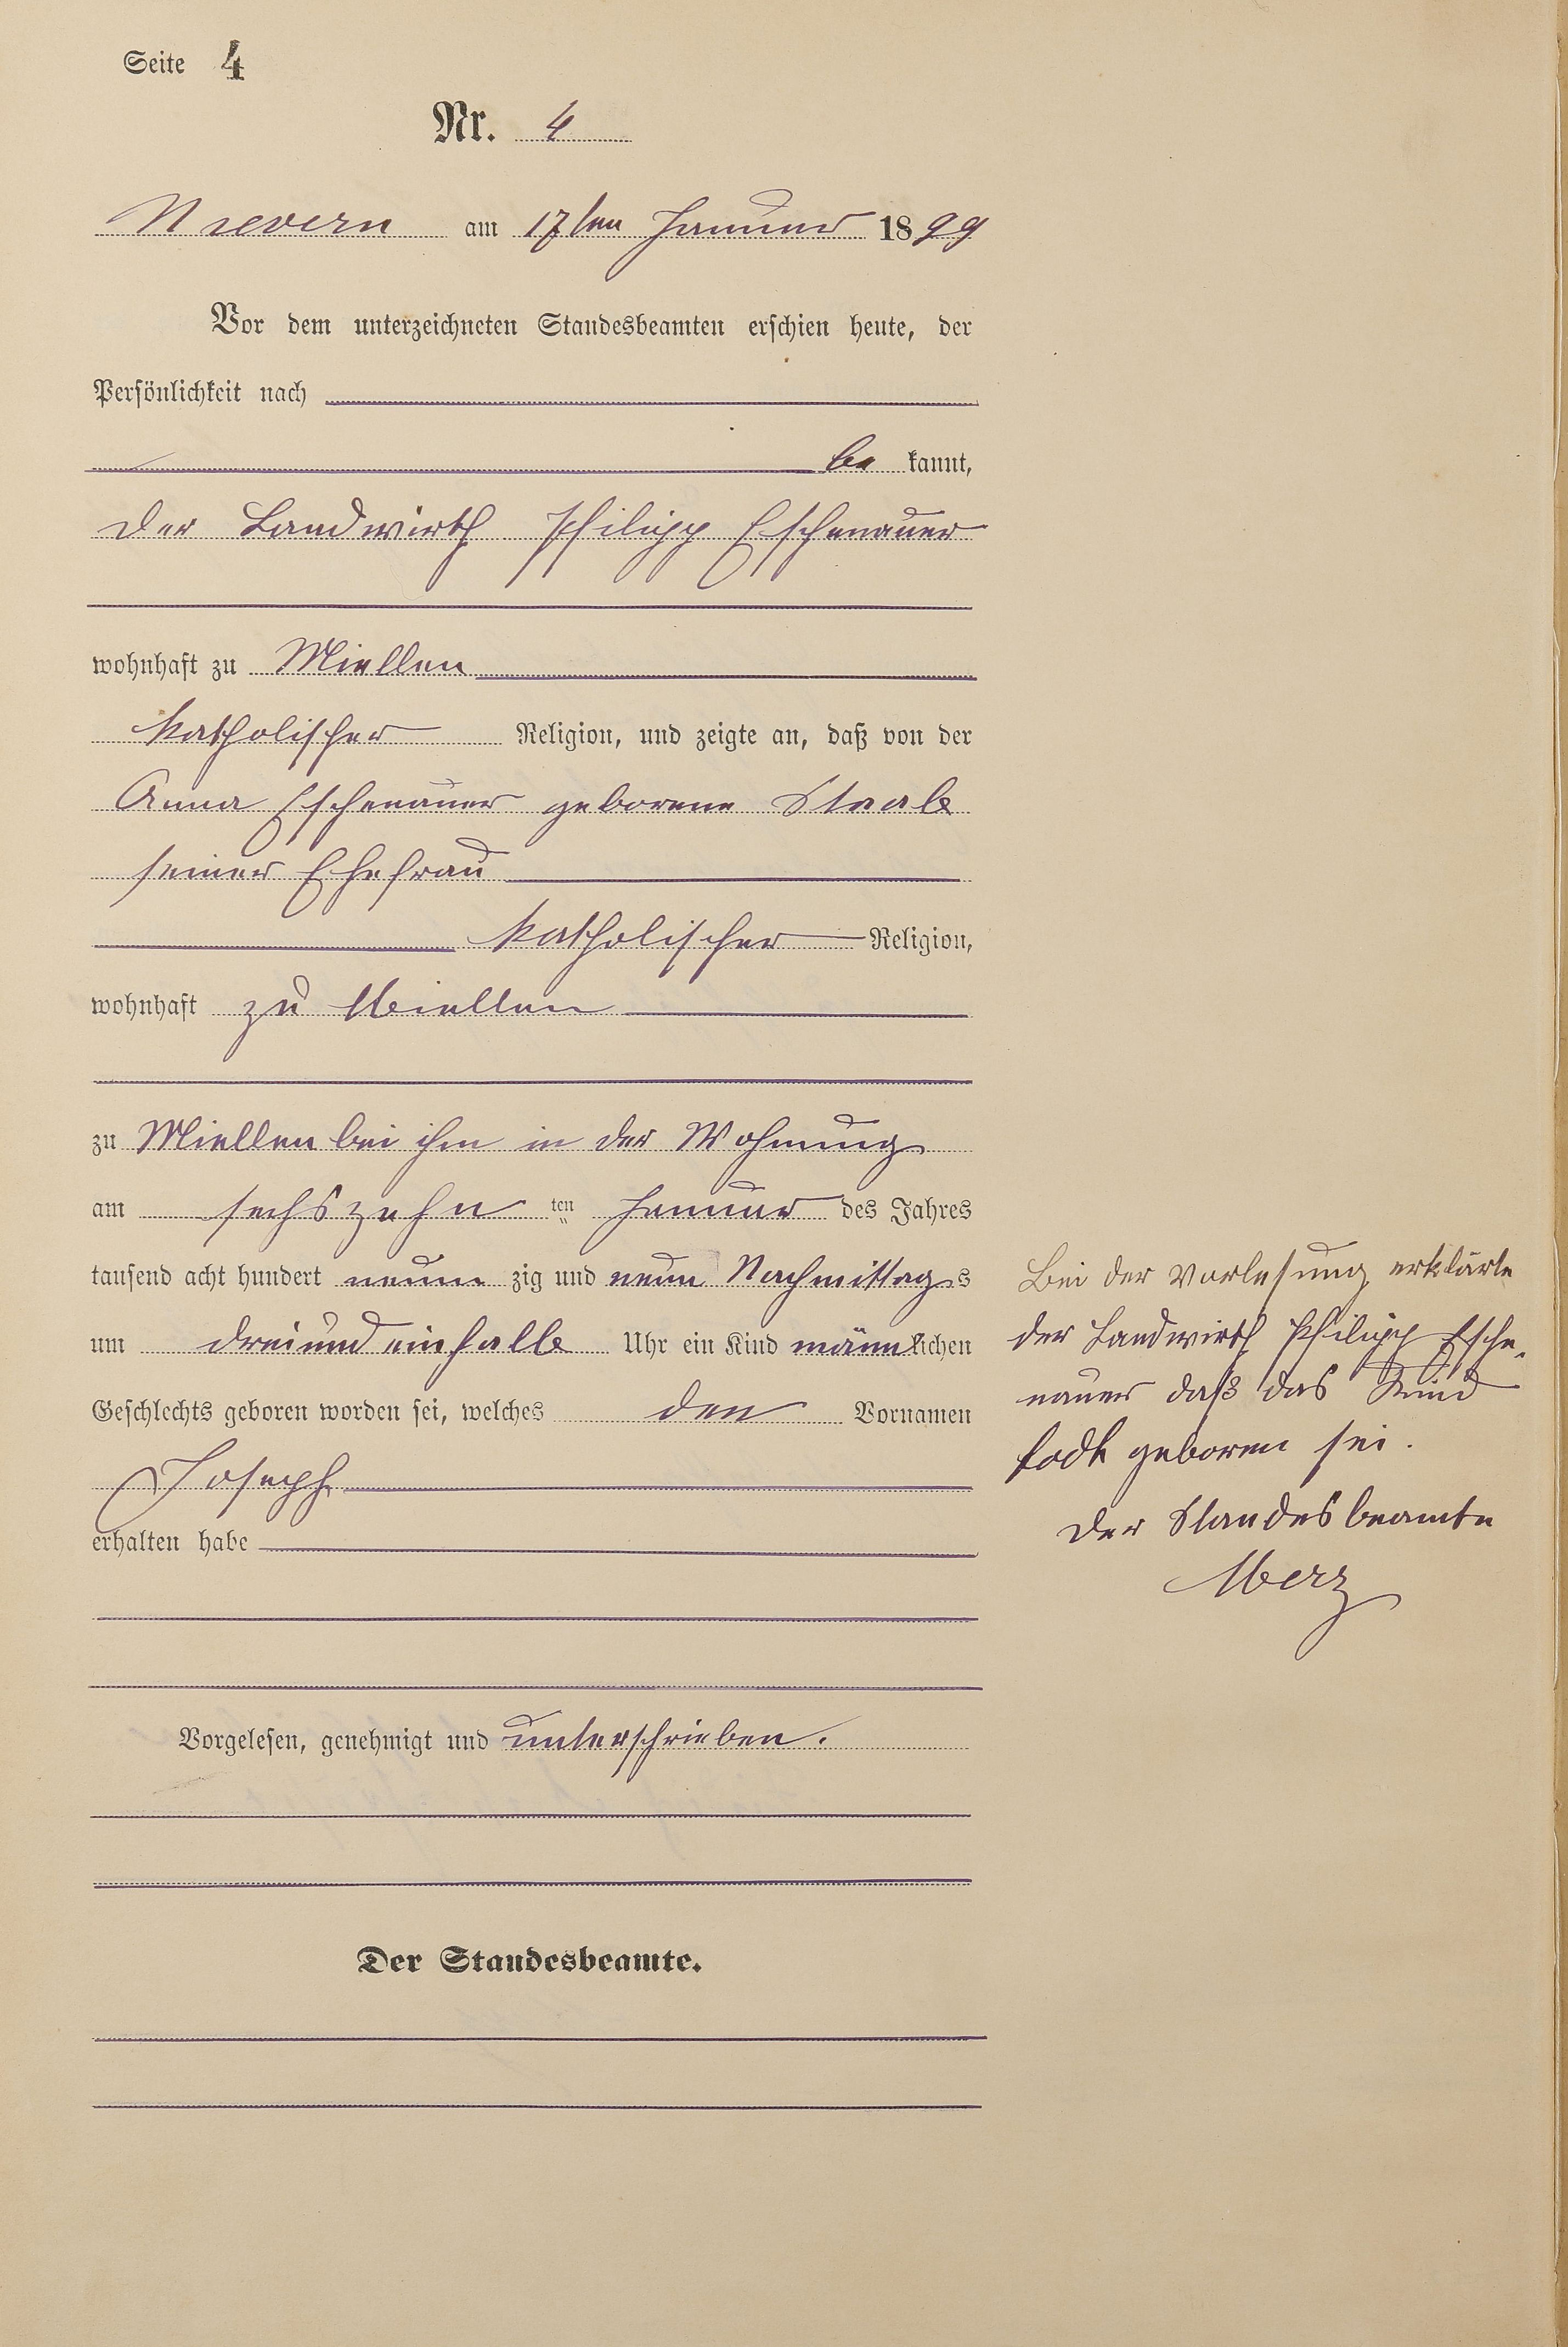 Seite 4
Nr. 4
Nievern am 17ten Januar 1899
Vor dem unterzeichneten Standesbeamten erschien heute, der
Persönlichkeit nach
be kannt,
der Landwirth Philipp Eschenauer
wohnhaft zu Miellen
katholischer Religion, und zeigte an, daß von der
Anna Eschenauer geborene Staab
seiner Ehefrau
katholischer Religion,
wohnhaft zu Miellen
zu Miellen bei ihm in der Wohnung
am sechszehn ten Januar des Jahres
tausend acht hundert neun zig und neun Nachmittags
um drei und ein halb Uhr ein Kind männlichen
Geschlechts geboren worden sei, welches den Vornamen
Joseph
erhalten habe
Vorgelesen, genehmigt und unterschrieben.
Der Standesbeamte.
Bei der Vorlesung erklärte
der Landwirth Philipp Esche-
nauer daß das Kind
todt geboren sei.
Der Standesbeamte
Merz